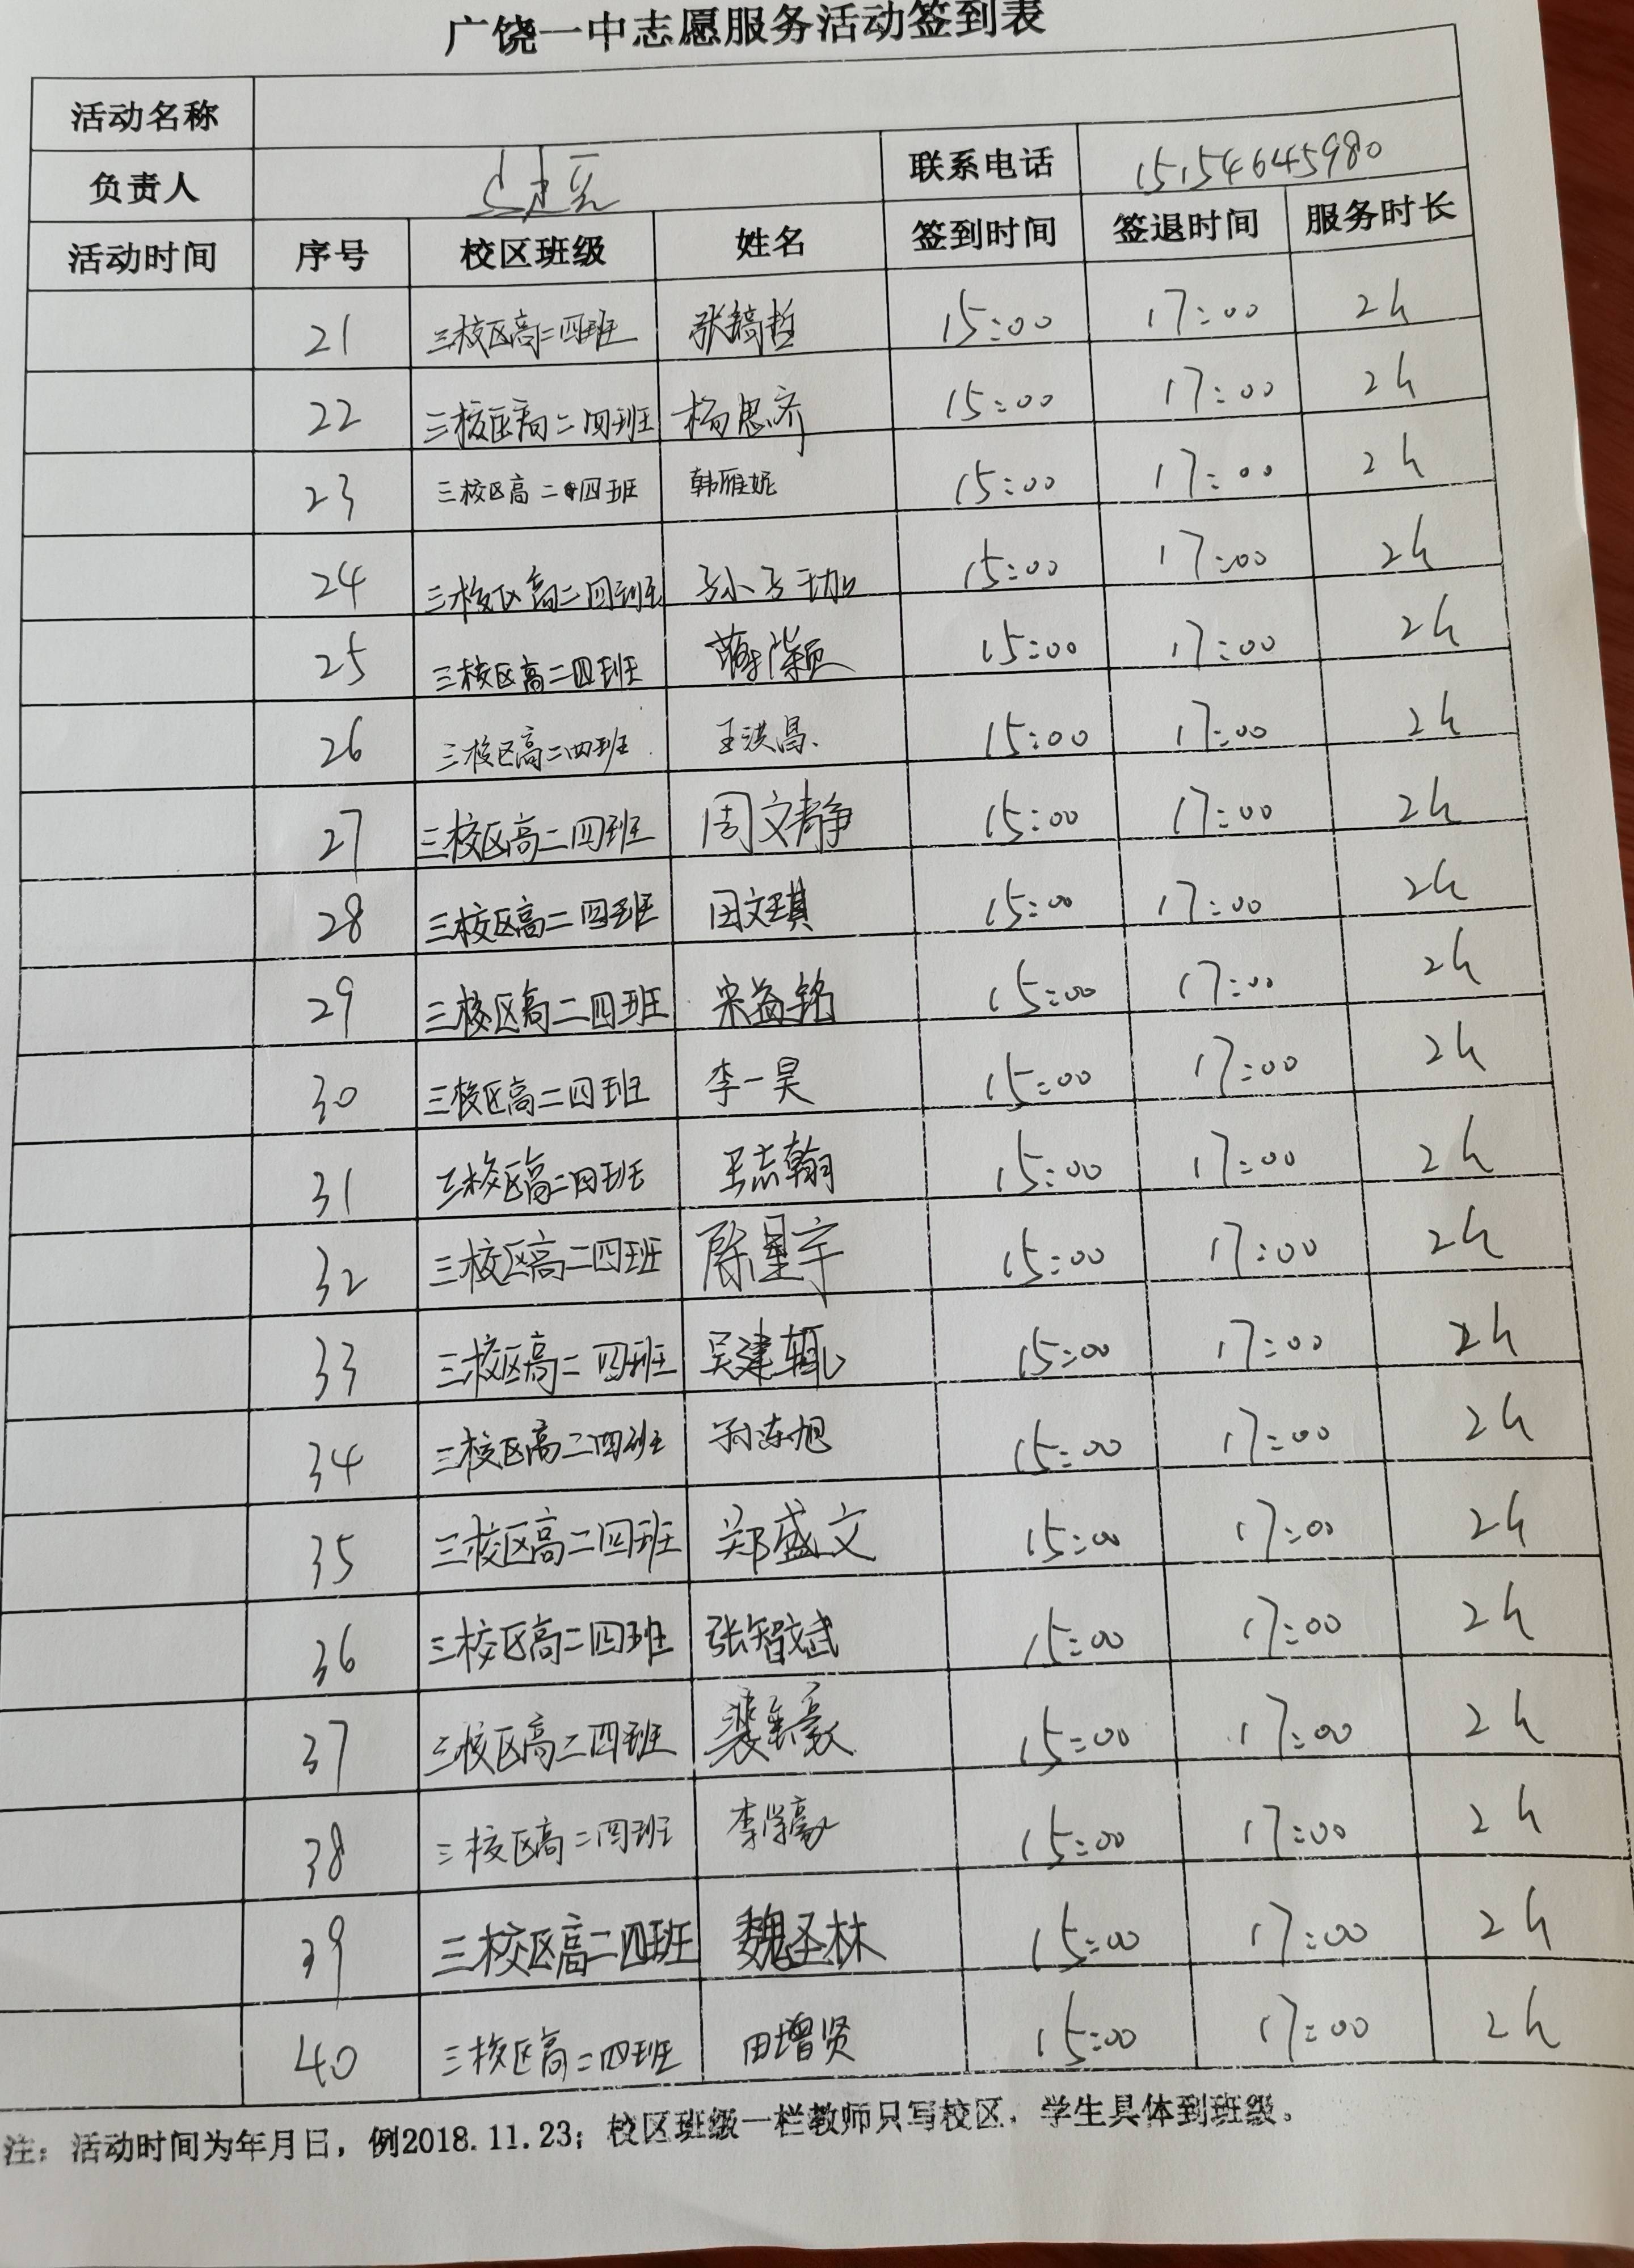 广饶一中志愿服务活动签到表
活动名称
负责人 联系电话 15154645980
活动时间 序号 校区班级 姓名 签到时间 签退时间 服务时长
21 三校区高二四班 张镐哲 15:00 17:00 2h
22 三校区高二四班 杨思齐 15:00 17:00 2h
23 三校区高二四班 韩雁妮 15:00 17:00 2h
24 三校区高二四班 孙子珈 15:00 17:00 2h
25 三校区高二四班 15:00 17:00 2h
26 三校区高二四班 王洪昌 15:00 17:00 2h
27 三校区高二四班 周文静 15:00 17:00 2h
28 三校区高二四班 田文琪 15:00 17:00 2h
29 三校区高二四班 宋益铭 15:00 17:00 2h
30 三校区高二四班 李一昊 15:00 17:00 2h
31 三校区高二四班 王志翰 15:00 17:00 2h
32 三校区高二四班 陈星宇 15:00 17:00 2h
33 三校区高二四班 吴建辄 15:00 17:00 2h
34 三校区高二四班 15:00 17:00 2h
35 三校区高二四班 郑盛文 15:00 17:00 2h
36 三校区高二四班 张智斌 15:00 17:00 2h
37 三校区高二四班 15:00 17:00 2h
38 三校区高二四班 李学豪 15:00 17:00 2h
39 三校区高二四班 魏圣林 15:00 17:00 2h
40 三校区高二四班 田增贤 15:00 17:00 2h
注：活动时间为年月日，例2018.11.23；校区班级一栏教师只写校区，学生具体到班级。